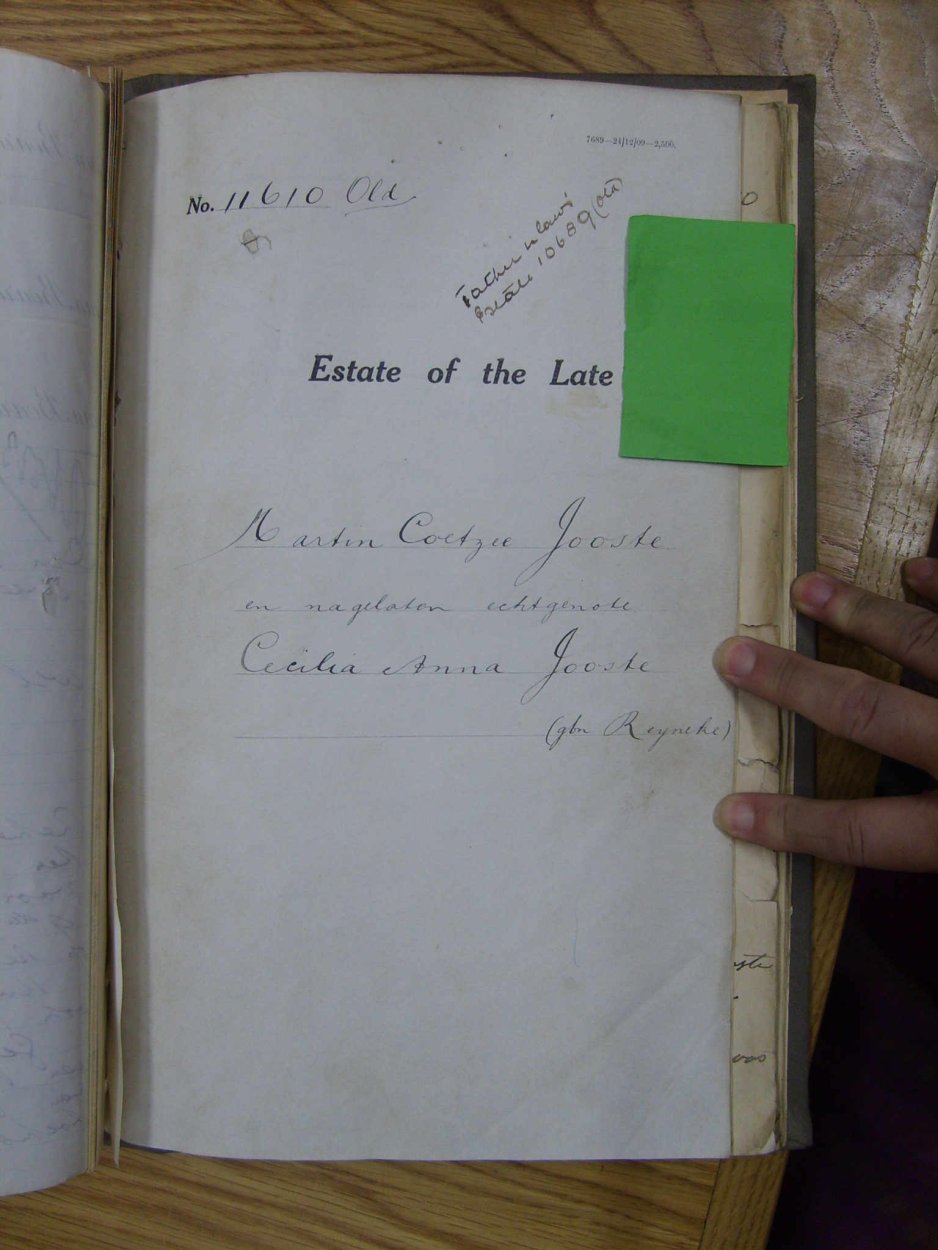 7689—24/12/09—2,500.
No. 11610 Old
Father in laws'
Estate 10689 (Old)
Estate of the Late
Martin Coetzee Jooste
en nagelaten echtgenote
Cecilia Anna Jooste
(gbn Reyneke)